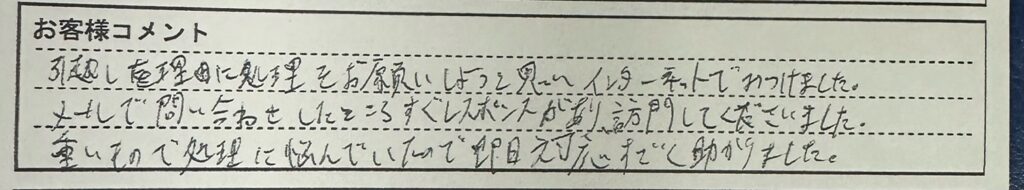 お客様コメント
引越しを理由に処理をお願いしようと思い、インターネットでみつけました。
メールで問い合わせしたところすぐレスポンスがあり、訪問してくださいました。
重いもので処理に悩んでいたので即日対応すごく助かりました。